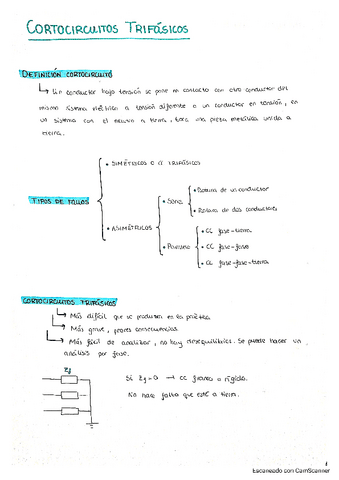 CORTOCIRCUITOS TRIFÁSICOS
DEFINICIÓN CORTOCIRCUITO
↳ Un conductor bajo tensión se pone en contacto con otro conductor del
mismo sistema eléctrico a tensión diferente o un conductor en tensión, en
un sistema con el neutro a tierra, toca una pieza metálica unida a
tierra.
TIPOS DE FALLOS
• SIMÉTRICOS O CC TRIFÁSICOS
• ASIMÉTRICOS
• Serie
• Rotura de un conductor
• Rotura de dos conductores
• Paralelo
• CC fase-tierra
• CC fase-fase
• CC fase-fase-tierra
CORTOCIRCUITOS TRIFÁSICOS
↳ Más difícil que se produzca en la práctica
↳ Más grave, peores consecuencias
↳ Más fácil de analizar, no hay desequilibrios. Se puede hacer un
análisis por fase.
Zf
Si Zf=0 → CC franco o rígido.
No hace falta que esté a tierra.
1
Escaneado con CamScanner